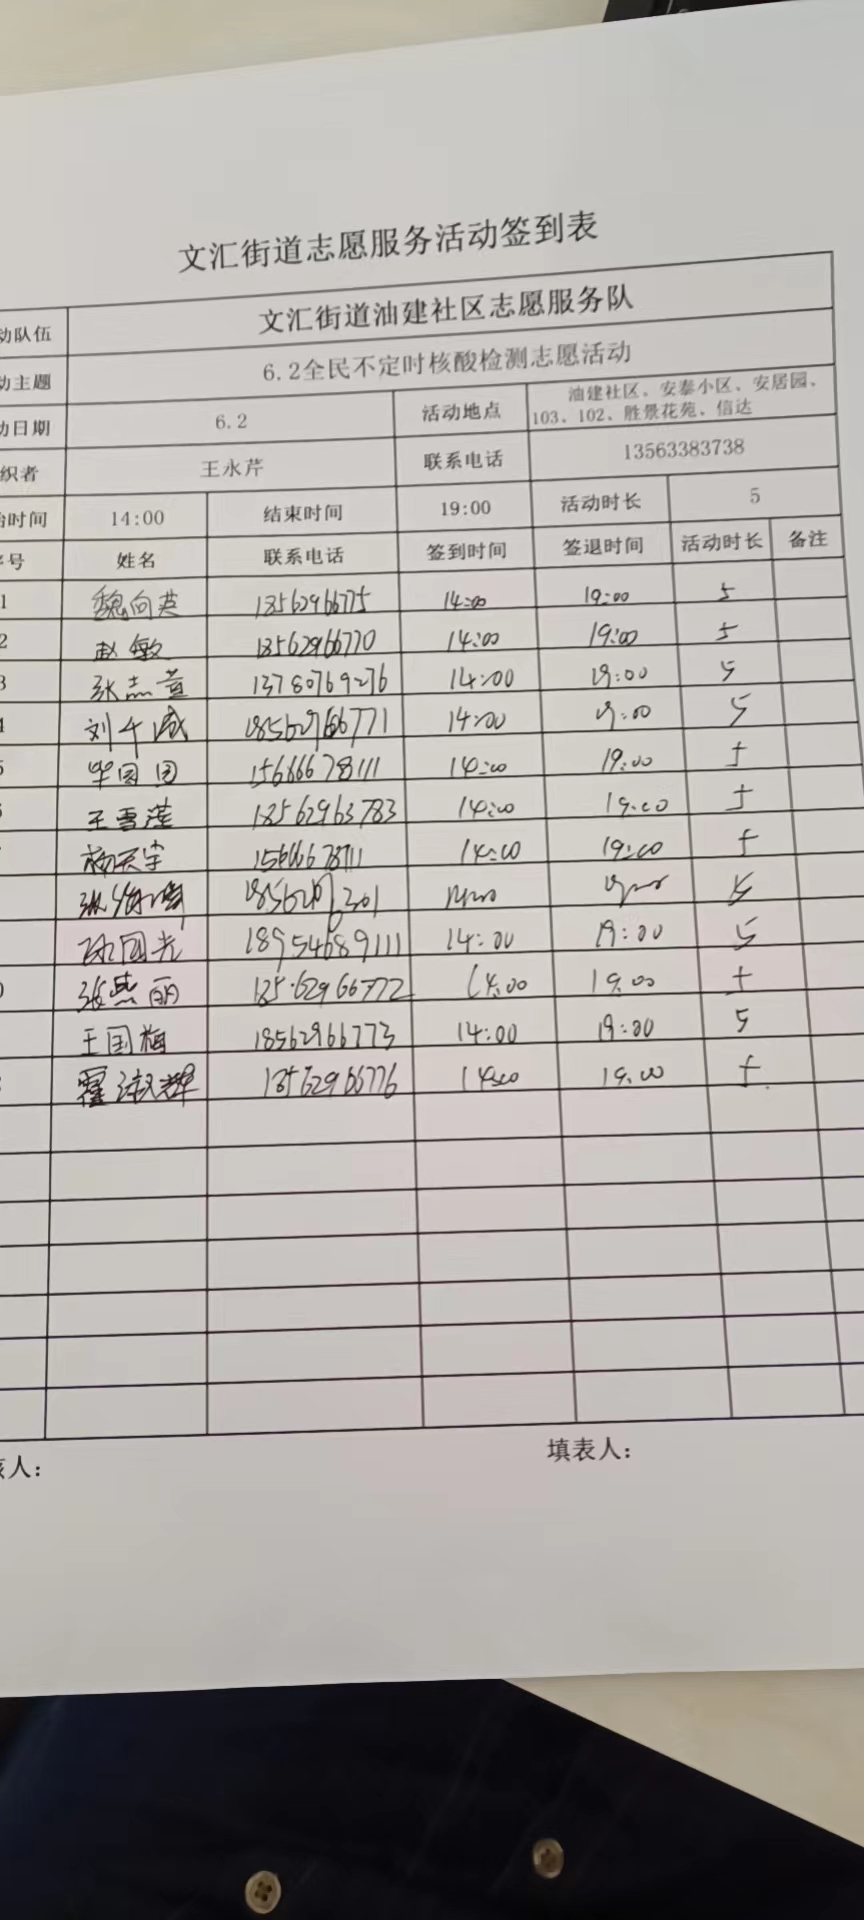 文汇街道志愿服务活动签到表
动队伍 文汇街道油建社区志愿服务队
动主题 6.2全民不定时核酸检测志愿活动
动日期 6.2 活动地点 油建社区、安泰小区、安居园、
103、102、胜景花苑、信达
织者 王永芹 联系电话 13563383738
始时间 14:00 结束时间 19:00 活动时长 5
序号 姓名 联系电话 签到时间 签退时间 活动时长 备注
1 魏向英 18562966775 14:00 19:00 5
2 赵敏 18562966770 14:00 19:00 5
3 张志萱 13780769276 14:00 19:00 5
4 刘千威 18562966771 14:00 19:00 5
5 毕园园 15666678111 14:00 19:00 5
王雪莲 18562963783 14:00 19:00 5
杨天宇 14:00 19:00 5
5
国光 18954689111 14:00 19:00 5
0 张燕丽 18562966772 14:00 19:00 5
王国梅 18562966773 14:00 19:00 5
霍淑辉 18562966776 14:00 19:00 5
核人： 填表人：